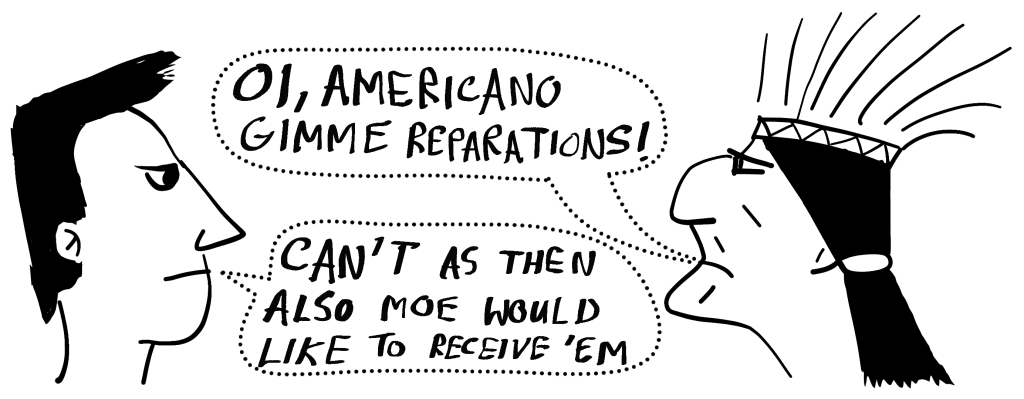 OI, AMERICANO
GIMME REPARATIONS!
CAN'T AS THEN
ALSO MOE WOULD
LIKE TO RECEIVE 'EM